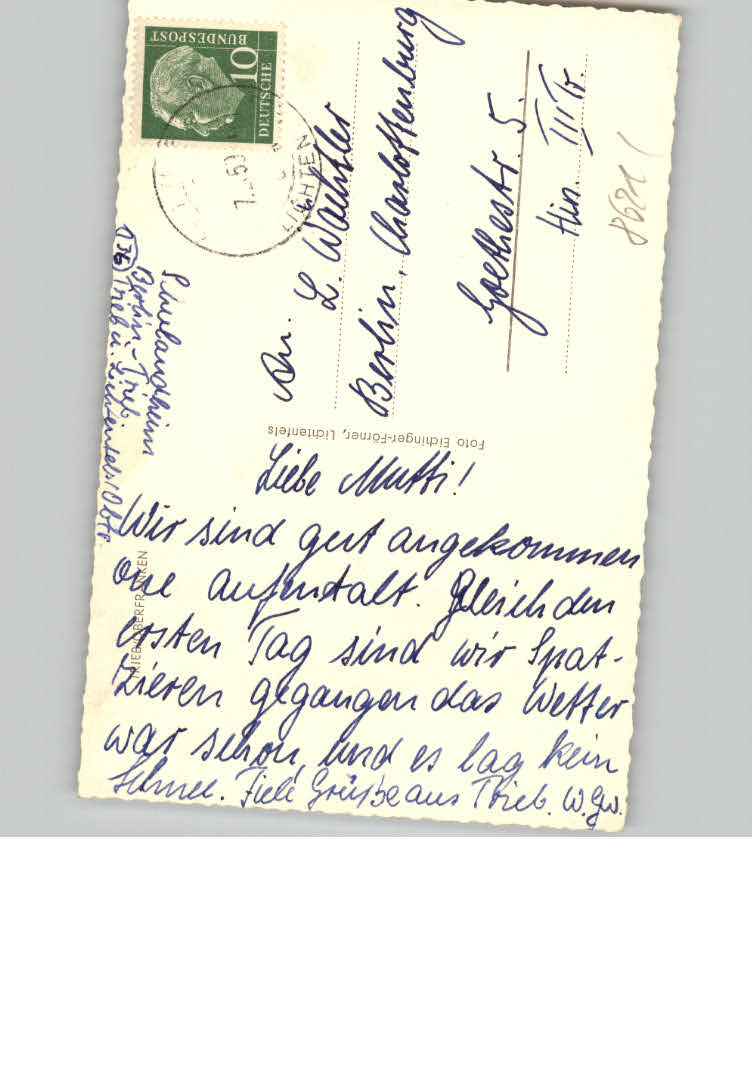 DEUTSCHE
BUNDESPOST
10
LICHTEN
An. L. Wachtler
Berlin, Charlottenburg
Goethestr. 5.
Hin. III Tr.
8621
Schulandheim
Berlin-Trieb.
Trieb ü. Lichtenfels/Obfr.
Foto Eichinger-Förner, Lichtenfels
TRIEB/OBERFRANKEN
Liebe Mutti!
Wir sind gut angekommen
one aufentalt. Gleich den
ersten Tag sind wir Spat-
zieren gegangen das Wetter
war schon, und es lag kein
Schnee. Fiele Grüße aus Trieb. W. Gw.